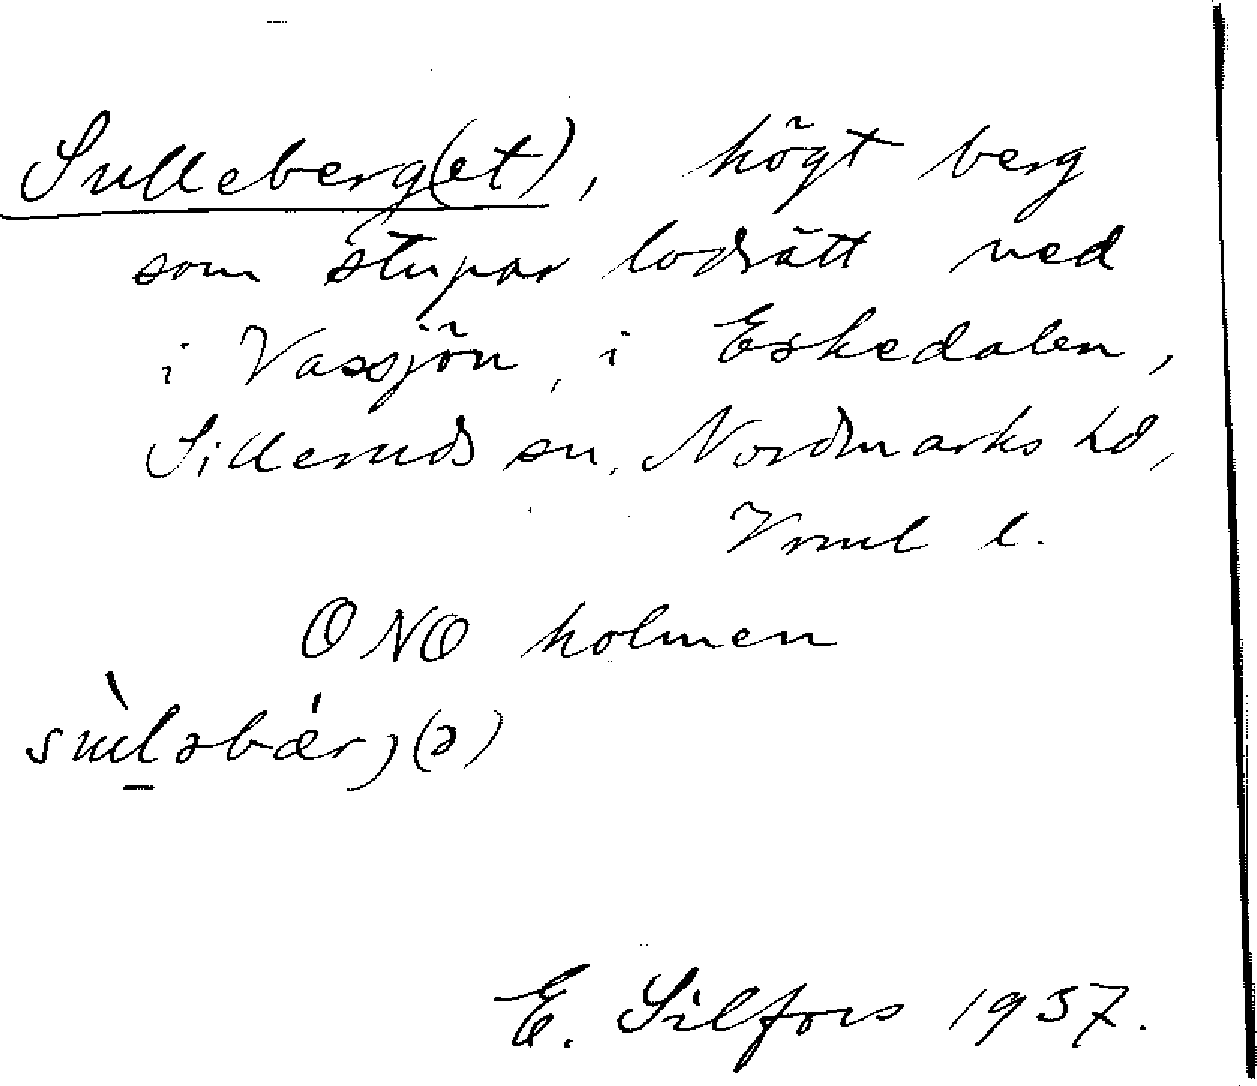 Sulleberg(et), högt berg
som stupar lodrätt ned
i Vassjön, i Eskedalen,
Silleruds sn, Nordmarks hd,
Vrml l.
ONO holmen
E. Silfors 1957.